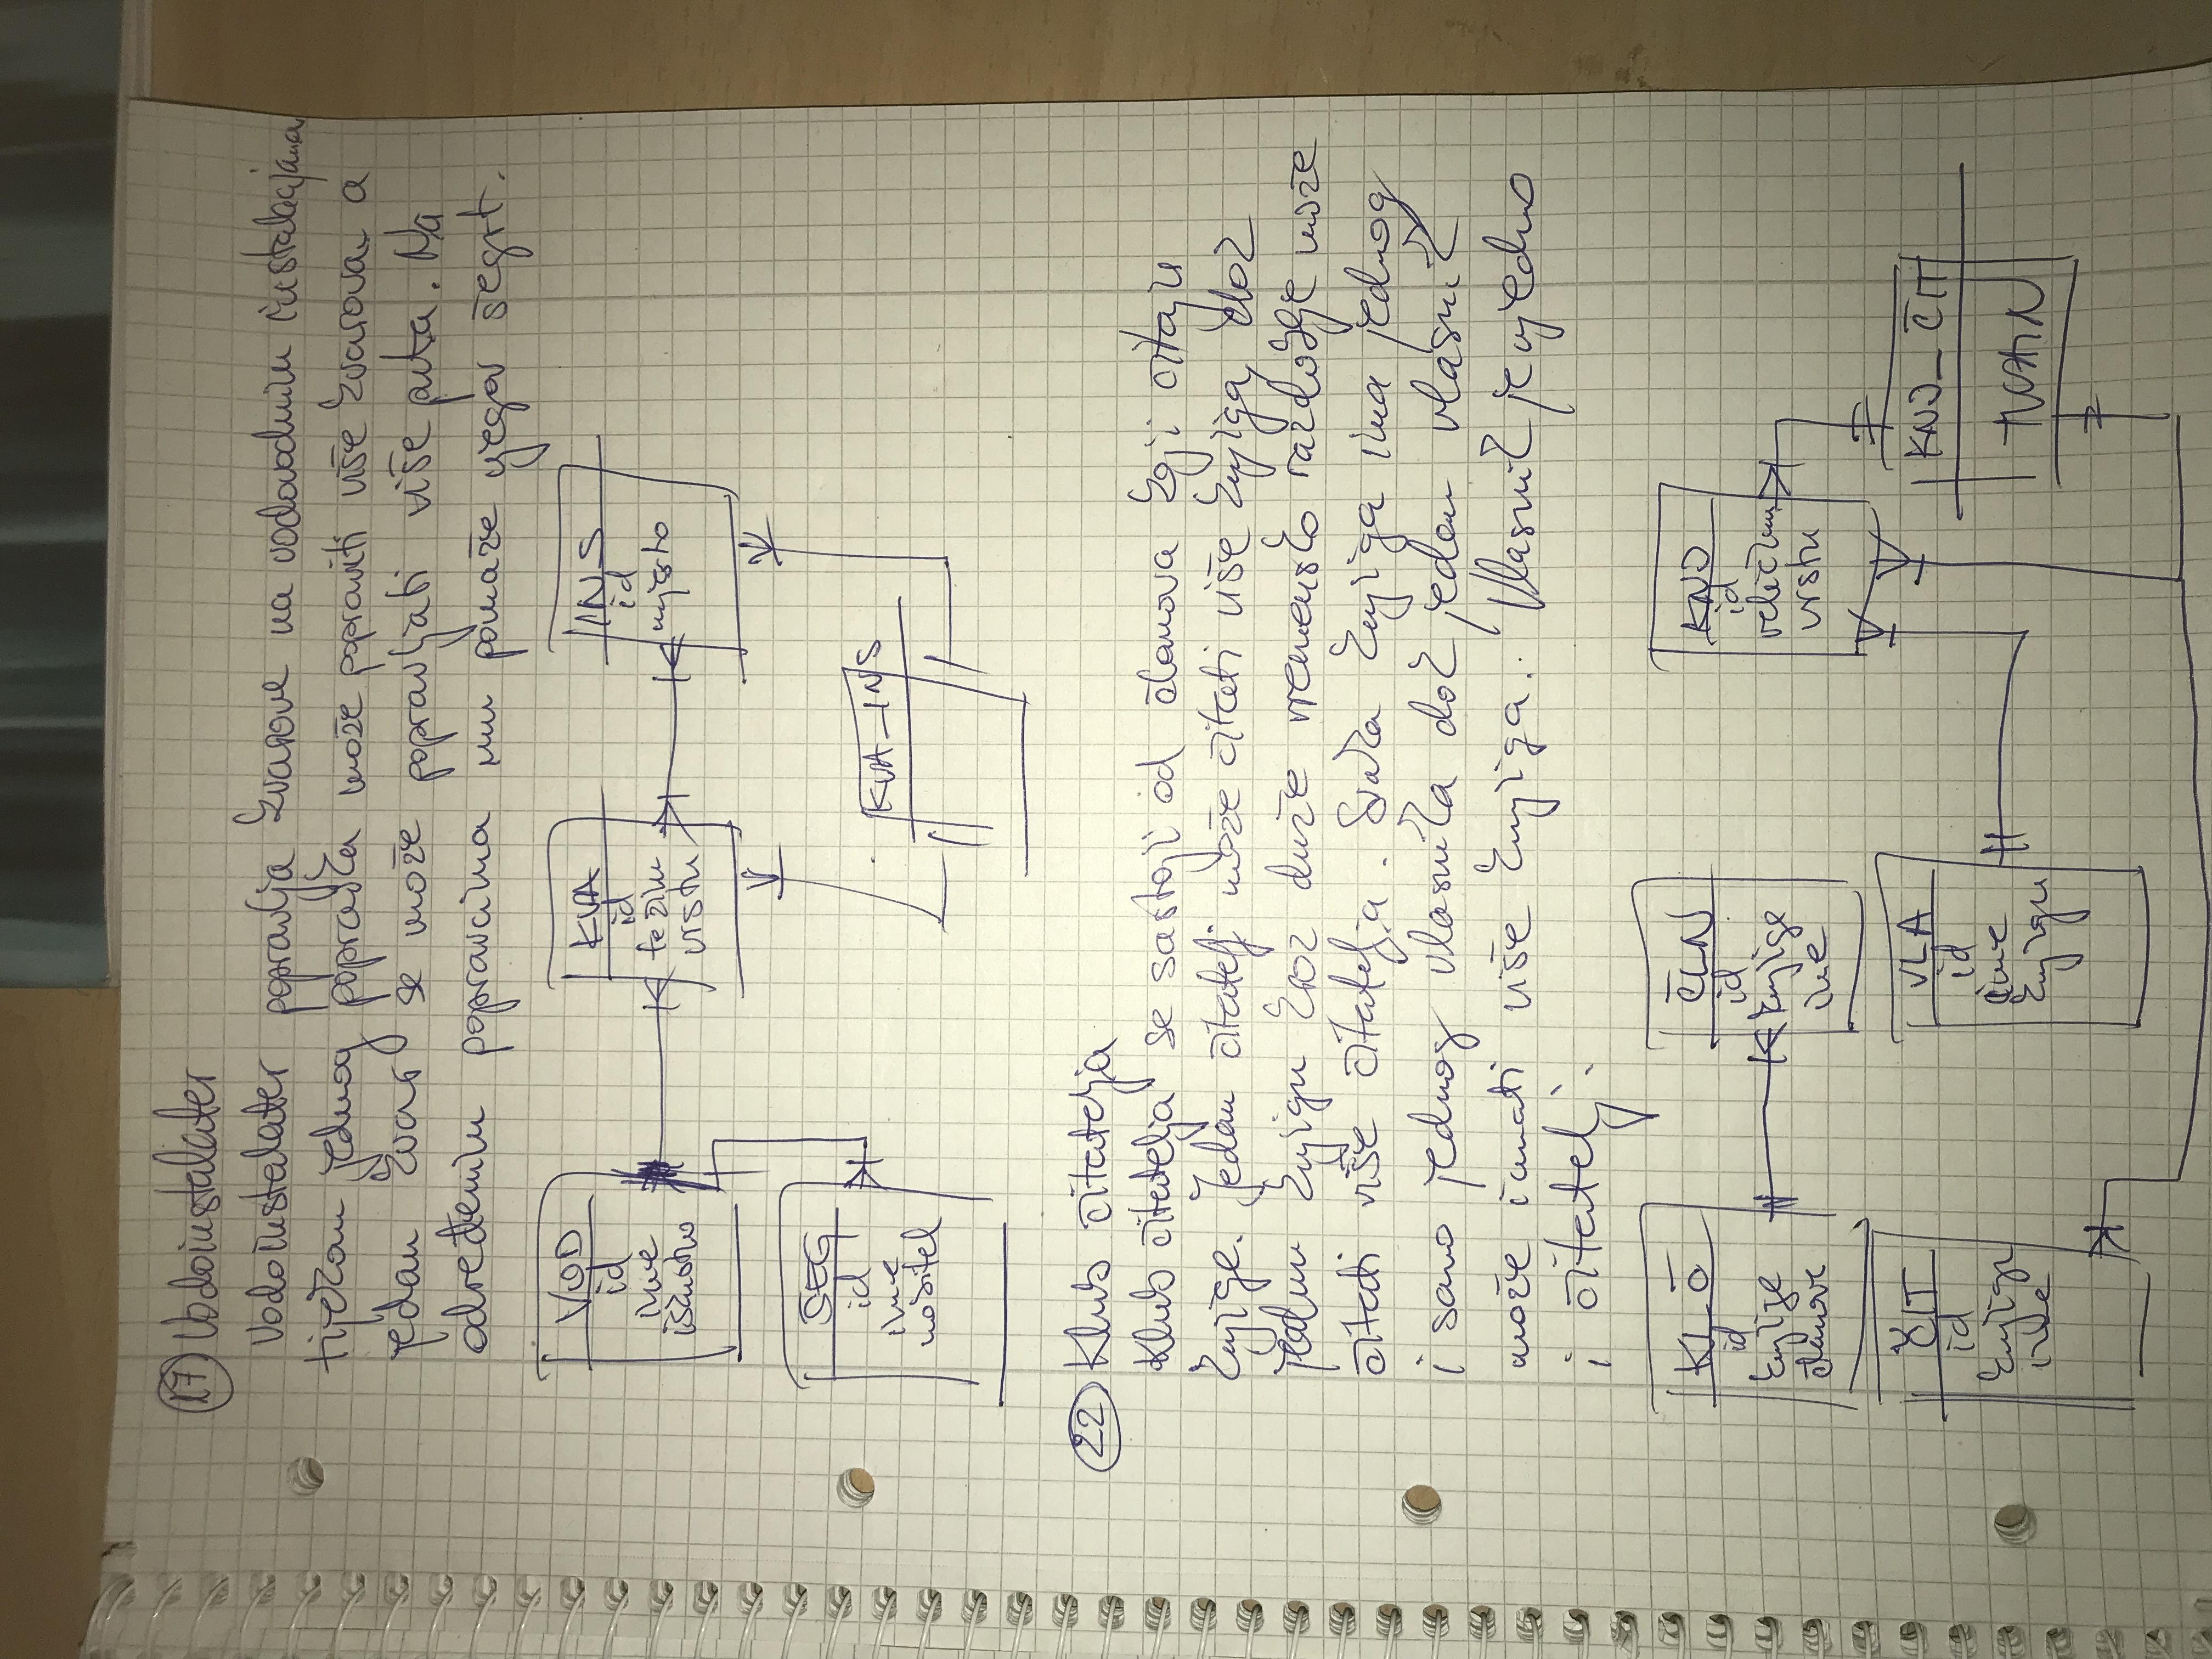 17 Vodoinstalater
Vodoinstalater popravlja kvarove na vodovodnim instalacijama
tijekom jednog popravka može popraviti više kvarova a
jedan kvar se može popravljati više puta. Na
određenim popravcima mu pomaže njegov šegrt.
VOD KVA INS
id id id
ime težinu mjesto
iskustvo vrstu
ŠEG
id
ime
KVA_INS
22 Klub čitatelja
Klub čitatelja se sastoji od članova koji čitaju
knjige. Jedan čitatelj može čitati više knjiga, dok
jednu knjigu kroz duže vremensko razdoblje može
čitati više čitatelja. Svaka knjiga ima jednog
i samo jednog vlasnika dok jedan vlasnik
može imati više knjiga. Vlasnik je ujedno
i čitatelj.
KL_Č ČLN KNJ
id id id
knjige knjige veličinu
članove ime vrstu
ČIT VLA KNJ_ČIT
id id
knjigu ime
ime knjigu